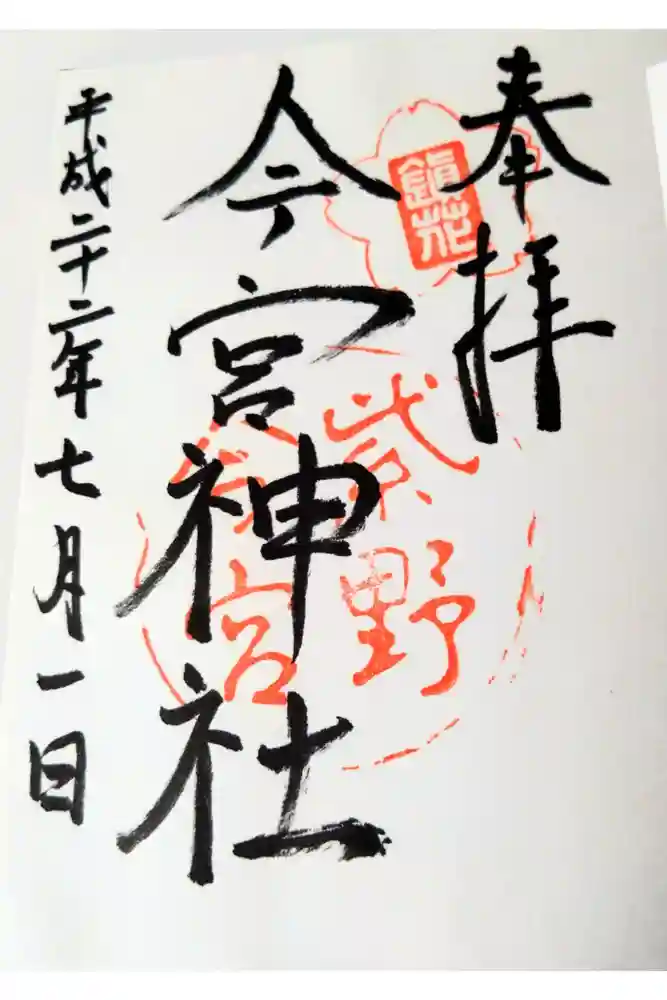 奉拝
鎮花
今宮神社
紫野
今宮
平成二十二年七月一日